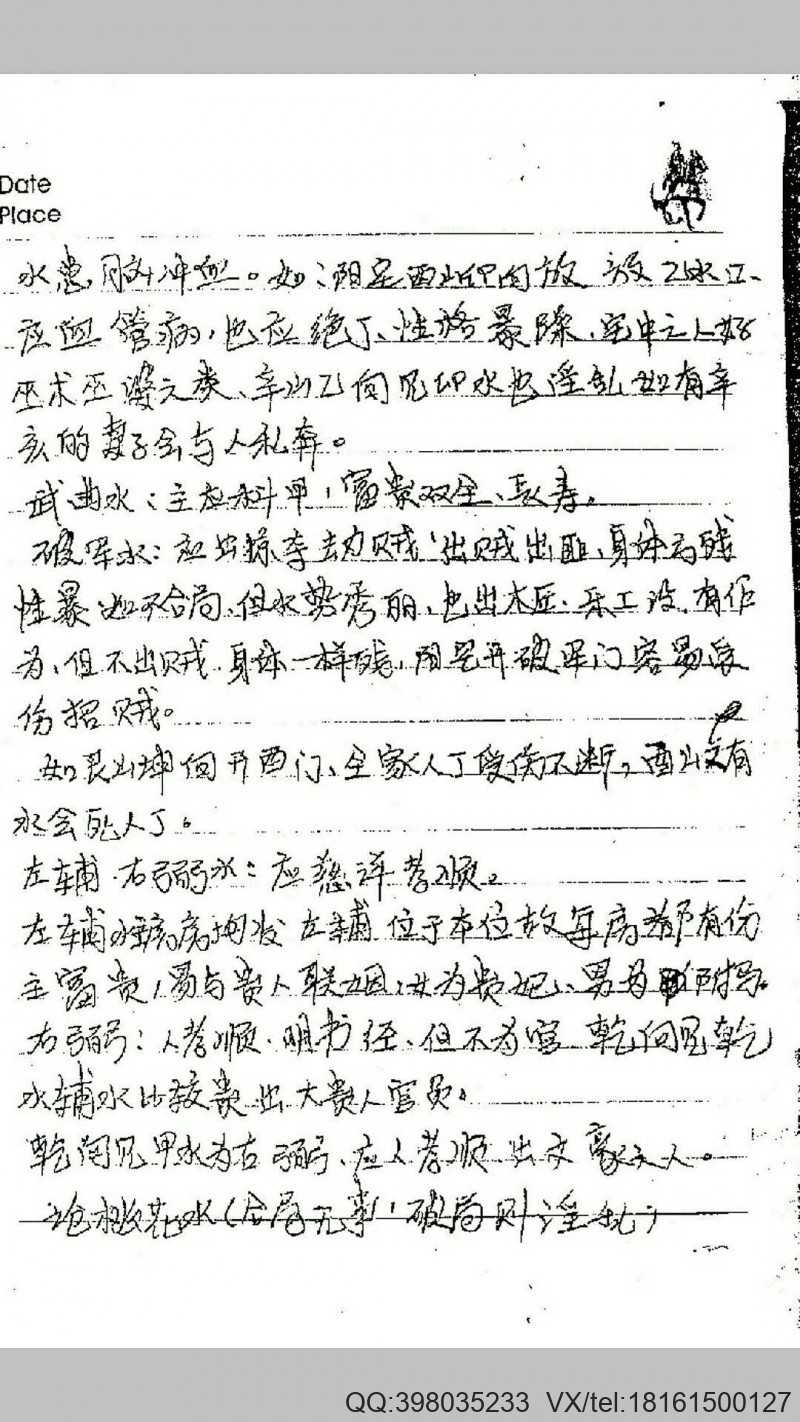 Date
Place
水患,脑冲血。如:阳宅酉山卯向放 放乙水口、
应血管病,也应绝丁、性格暴躁,宅中之人好
巫术巫婆之类、辛山乙向见卯水也淫乱如有辛
亥的妻子会与人私奔。
武曲水:主应科甲,富贵双全、长寿。
破军水:应出掠夺劫贼,出贼出匪、身体有残
性暴如不合局,但水势秀丽,也出木匠、乐工 有作
为,但不出贼 身体一样残,阳宅开破军门容易受
伤招贼。
如艮山坤向开酉门、全家人丁受伤不断,酉山 有
水会死人丁。
左辅·右弼水:应慈祥孝顺。
左辅水 左辅位于本位故每房都有份
主富贵,易与贵人联姻,女为贵妃、男为附马。
右弼:人孝顺·明书经、但不为官 乾向见乾
水辅水比较贵出大贵人官员。
乾向见甲水为右弼、应人孝顺出文豪文人。
论桃花水(合局无事,破局则淫乱)
QQ:398035233 VX/tel:18161500127